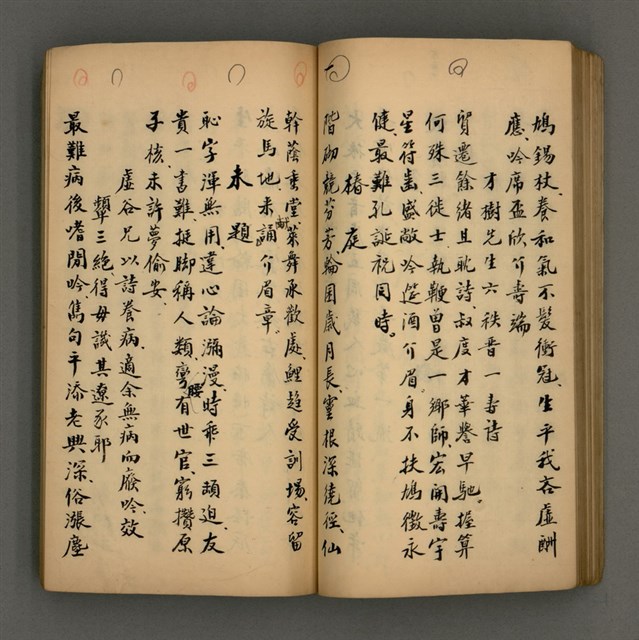 鳩錫杖、養和氣不髮衝冠、生平我吝虛酬
應、吟席盃欣介壽端
才樹先生六秩晋一壽詩
貿遷餘緒且耽詩、叔度才華譽早馳、握算
何殊三徙士、執鞭曾是一鄉師、宏開壽宇
星符耋、盛敞吟筵酒介眉、身不扶鳩徵永
健、最難孔誕祝同時。
椿庭
階砌競芬芳、輪囷歲月長、靈根深繞徑、仙
幹蔭重堂、萊舞承歡處、鯉趨受訓場、容留
旋馬地、未誦介眉章、
獻
未題
恥字渾無用、違心論瀰漫、時乖三頭迫、友
貴一書難、挺脚稱人類、彎有世官、窮攢原
腰
子核、未許夢偷安、
虛谷兄以詩養病、適余無病而廢吟、效
顰三絕、得毋譏其遼豕耶
最難病後嗜閒吟、雋句平添老興深、俗漲塵